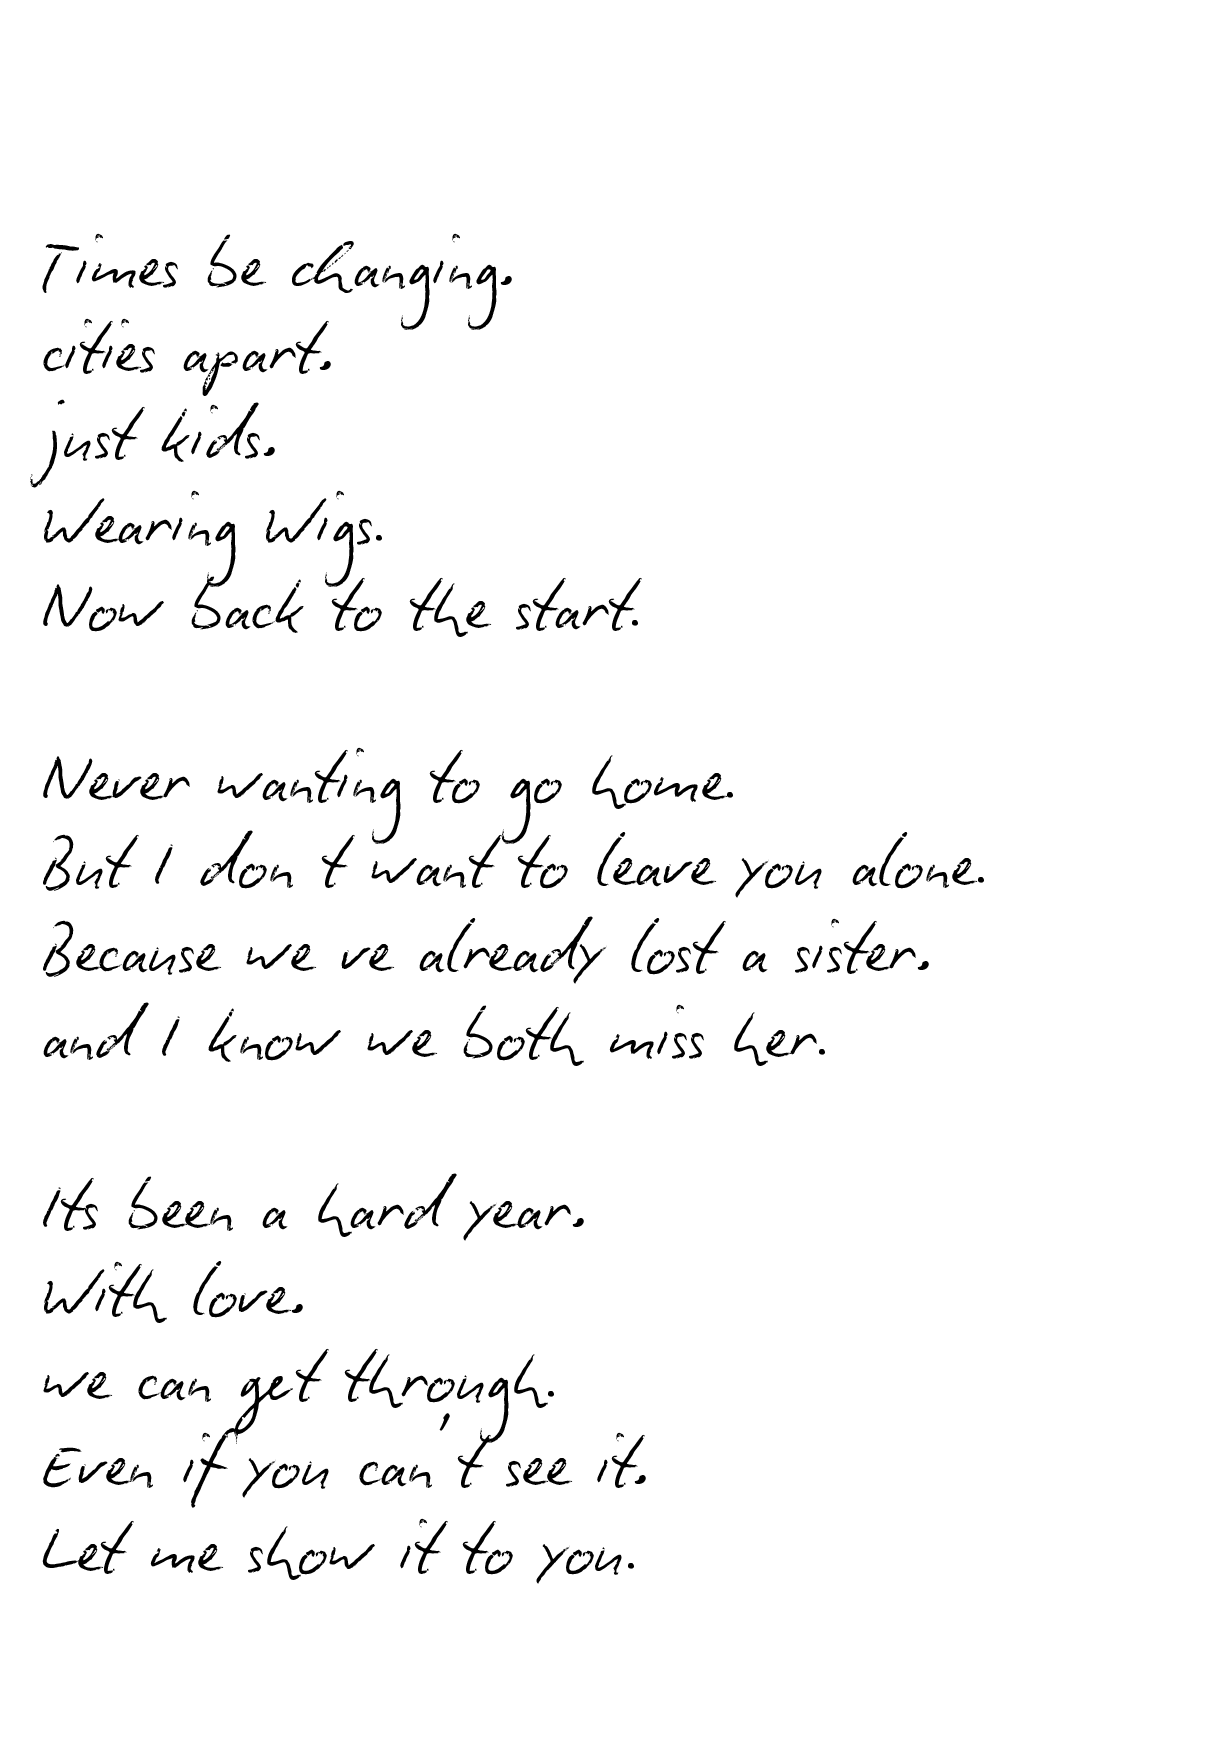 Times be changing.
cities apart.
just kids.
Wearing Wigs.
Now back to the start.
Never wanting to go home.
But I don t want to leave you alone.
Because we ve already lost a sister.
and I know we both miss her.
Its been a hard year.
With love.
we can get through.
Even if you can't see it.
Let me show it to you.